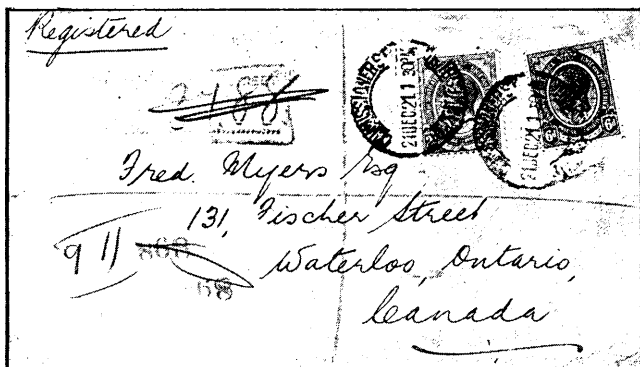 Registered
3188
COMMISSIONER STR
21 DEC 21 1 30PM
21 DEC 21 1 30PM
Fred. Myers Esq
131, Fischer Street
911 868
68
Waterloo, Ontario,
Canada